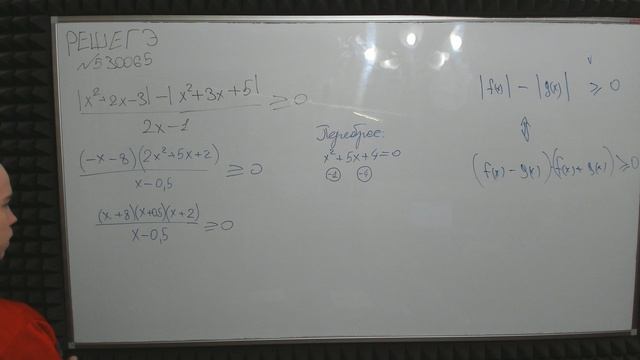 РЕШЕГЭ
№530065
|x²+2x-3|-|x²+3x+5| / 2x-1 ≥ 0
(-x-8)(2x²+5x+2) / x-0,5 ≥ 0
(x+8)(x+0,5)(x+2) / x-0,5 ≥ 0
Переброс:
x²+5x+4=0
-1 -4
|f(x)| - |g(x)| ≥ 0
⇕
(f(x)-g(x))(f(x)+g(x)) ≥ 0